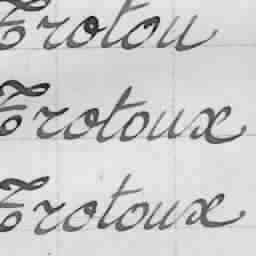 Trotou
Trotoux
Trotoux